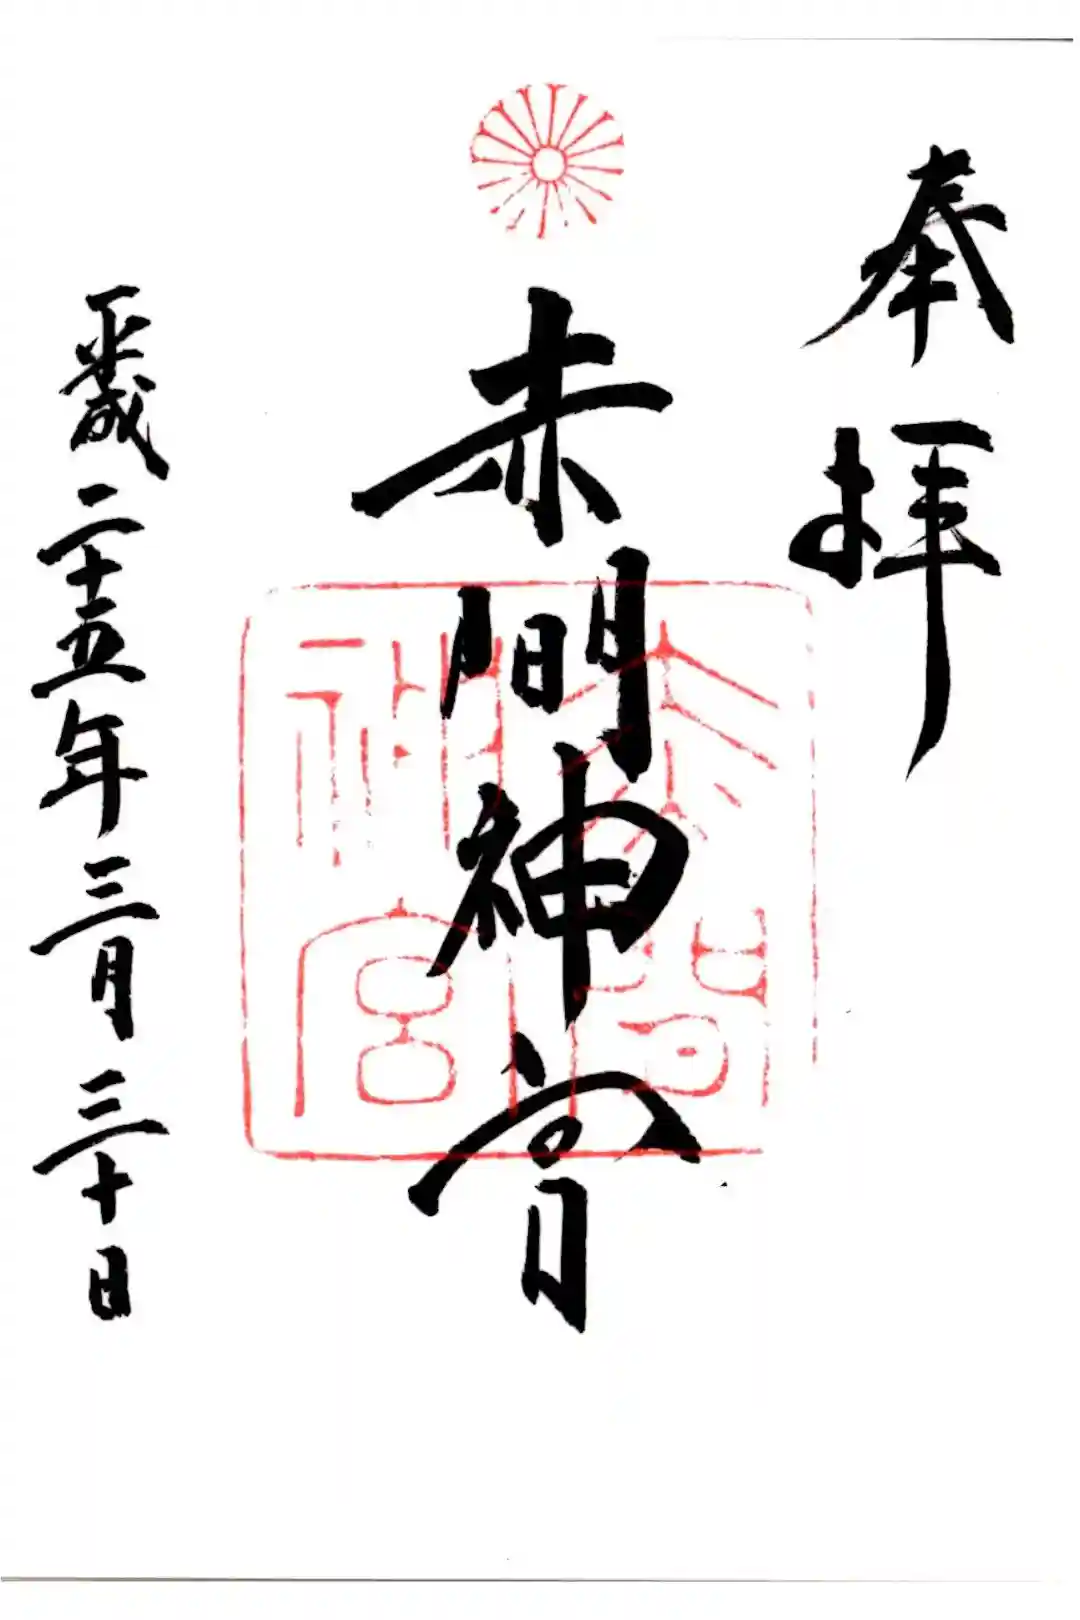 奉拝
赤間神宮
平成二十五年三月三十日
赤間神宮